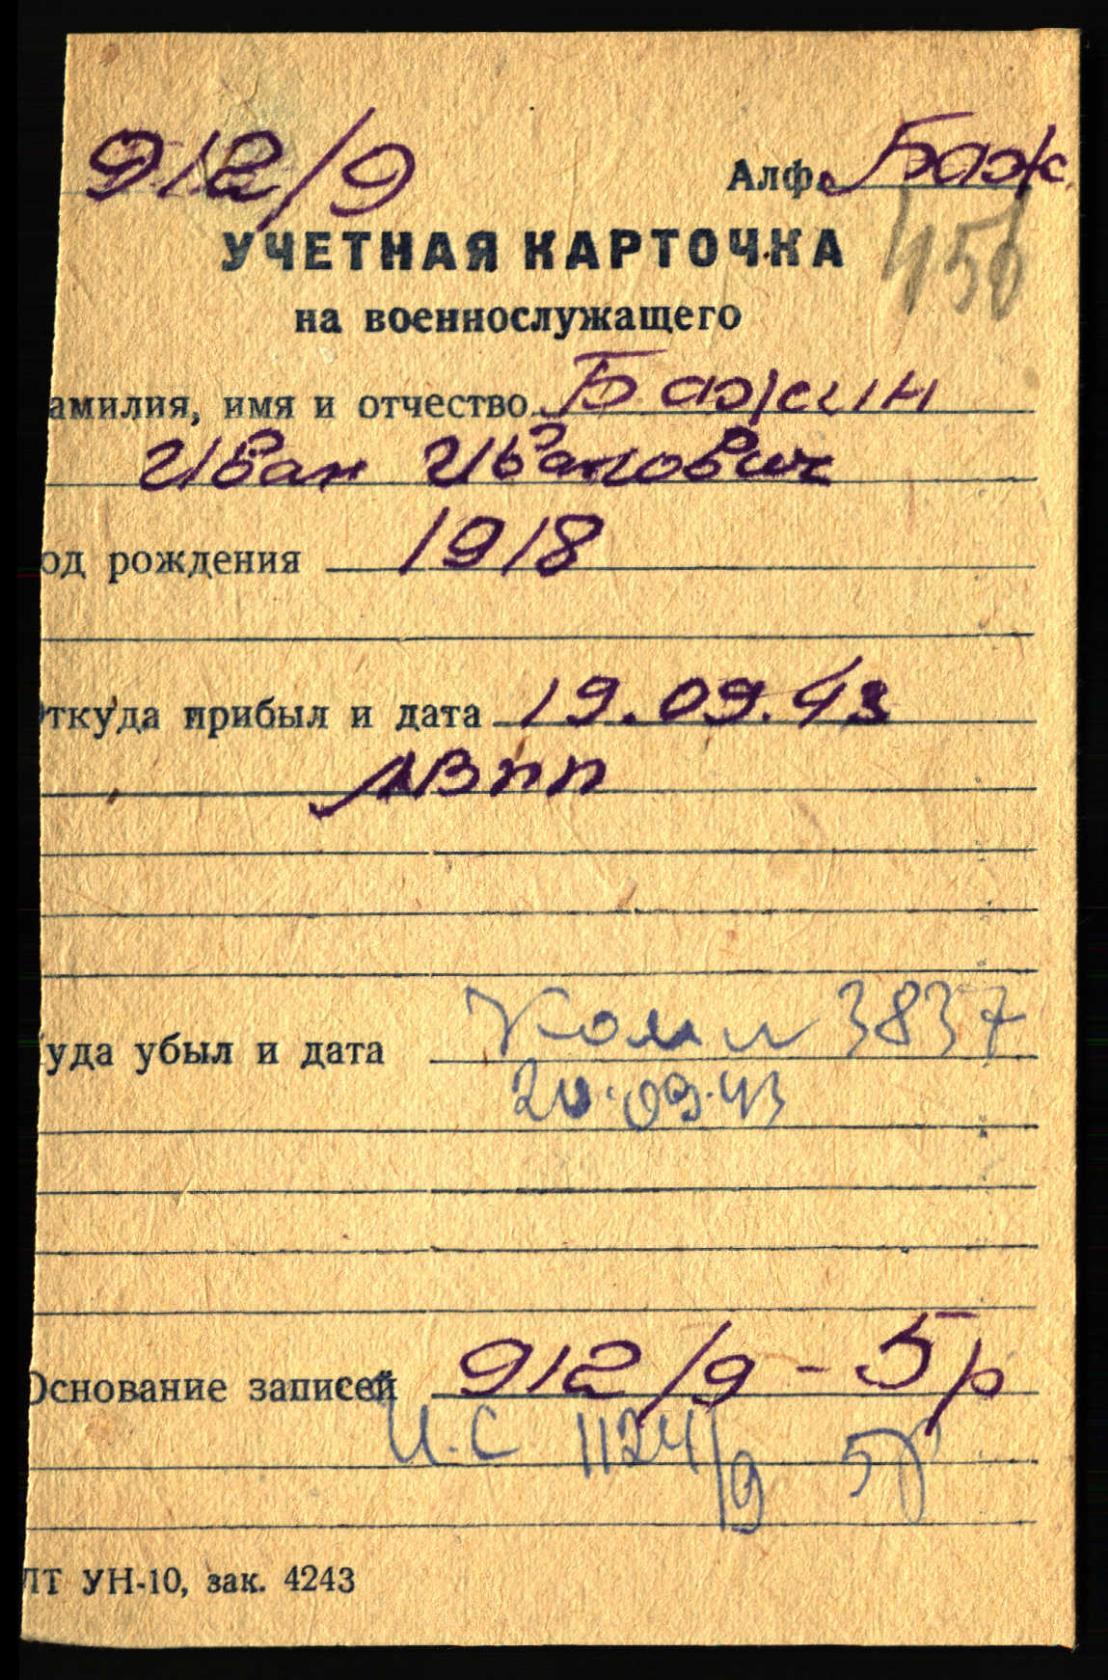 912/9 Алф. Баж.
456
УЧЕТНАЯ КАРТОЧКА
на военнослужащего
амилия, имя и отчество Бажин
Иван Иванович
од рождения 1918
ткуда прибыл и дата 19.09.43
ЛВПП
уда убыл и дата 3837
20.09.43
Основание записей 912/9 - 5р
И.С 1124/9 5р
ЛТ УН-10, зак. 4243